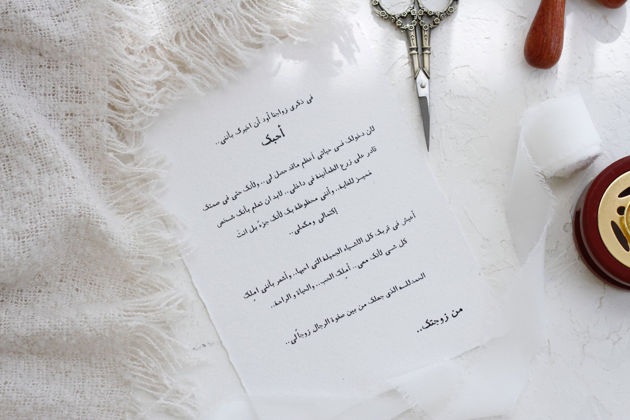 في ذكرى زواجنا أود أن اخبرك بأنني..
أحبك
لأن دخولك فى حياتي أعظم ماقد حصل لي.. ولأنك حتى في صمتك
قادر على زرع الطمأنينة في داخلي.. لابد ان تعلم بأنك شخص
مميز للغاية.. وأنني محظوظة بك لأنك جزء بل انت
إكتمالي ومكملي..
أعيش في قربك كل الأشياء الجميلة التي احبها.. وأشعر بأنني املك
كل شئ لأنك معي.. أملك الحب.. والحياة والراحة..
الحمدلله الذي جعلك من بين صفوة الرجال زوجاً لي..
من زوجتك..